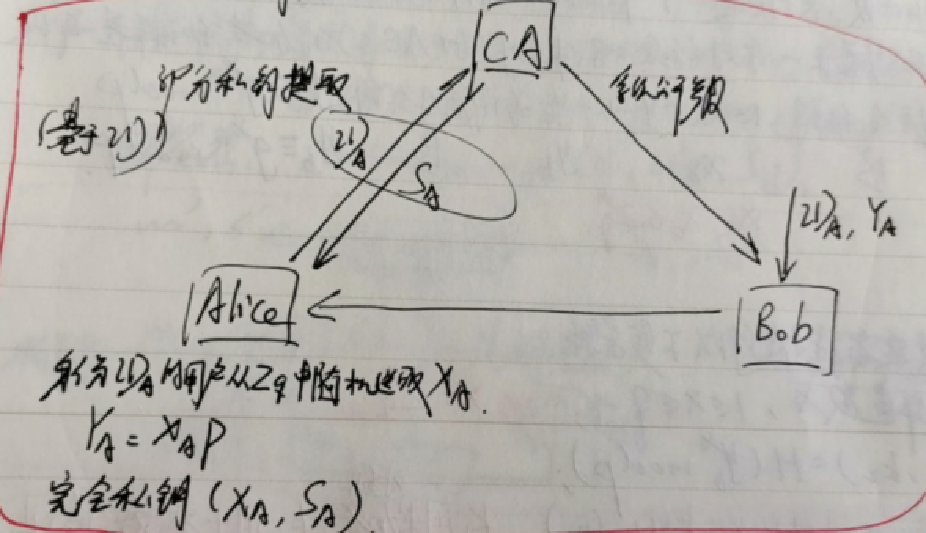 CA
部分私钥提取
(基于ID)
系统参数
ID_A
S_A
ID_A, Y_A
Alice
Bob
身份ID_A的用户从Zq中随机选取X_A.
Y_A = X_A P
完全私钥 (X_A, S_A)